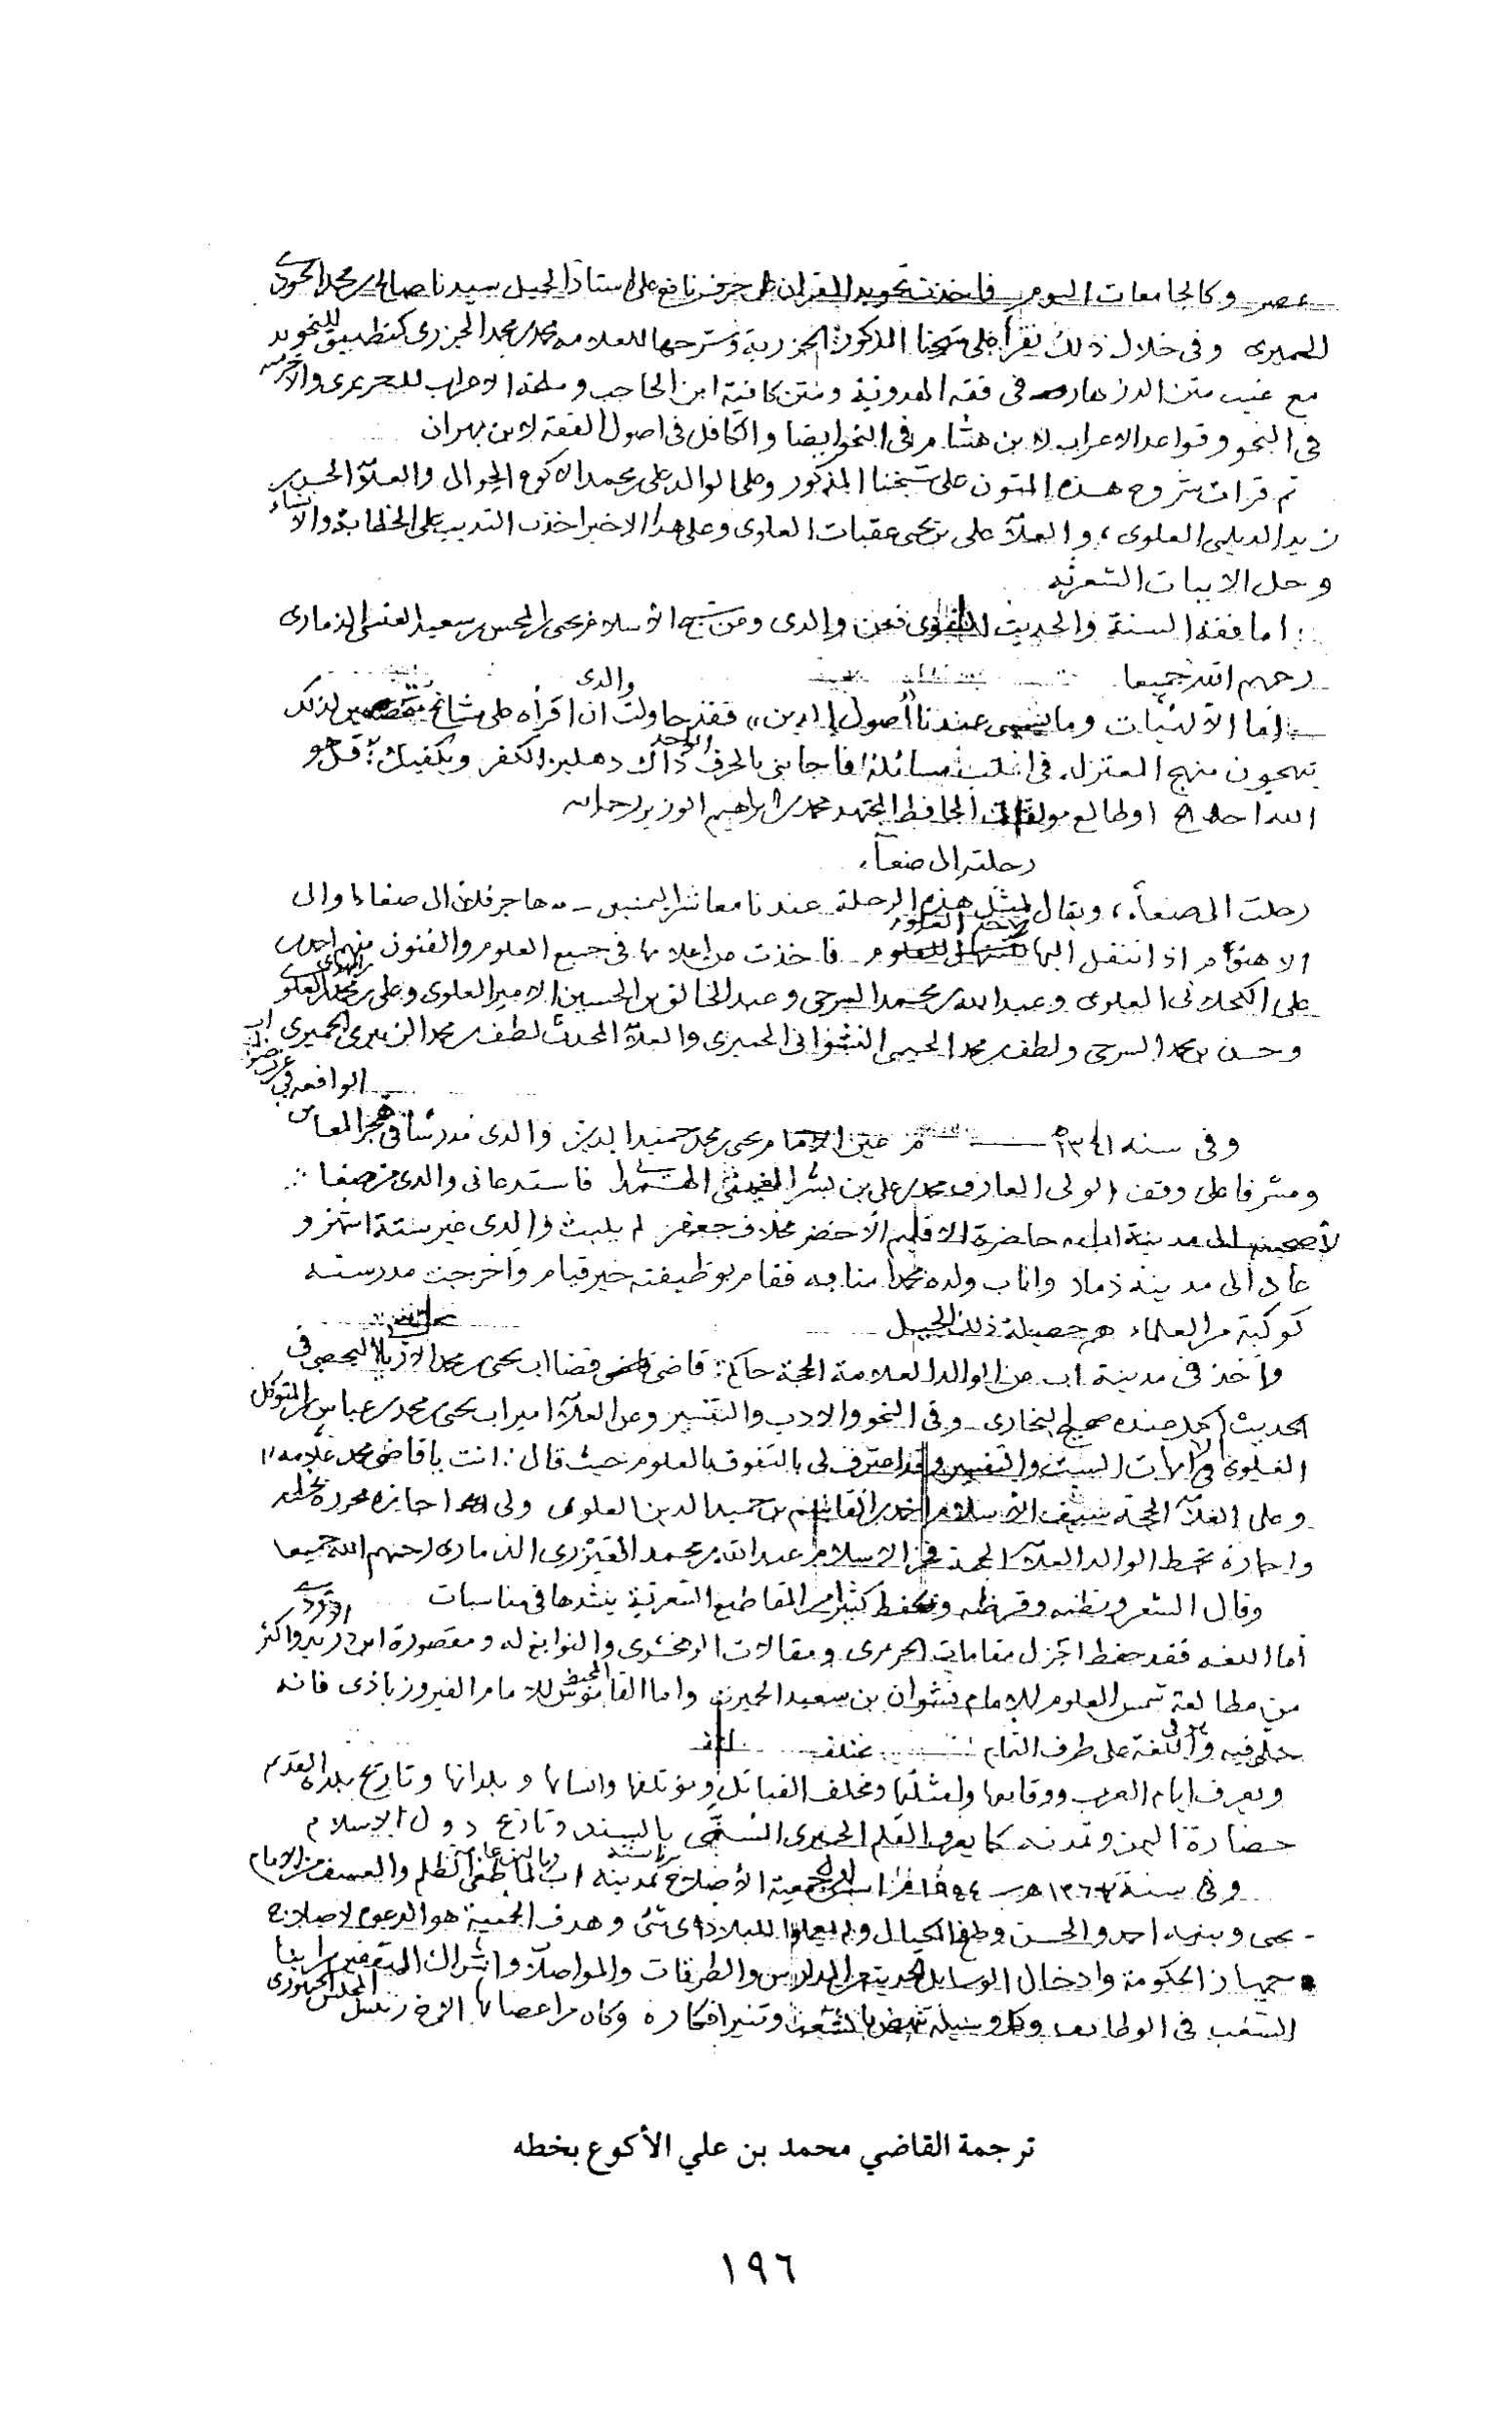 عصر وكالجامعات اليوم فاخذت تجويد القران على حرف نافع على استاذ الجيل سيدنا صالح بن محمد الحودي
الحميرى وفى خلال ذلك نقرأ على شيخنا المذكور الجزرية وشرحها للعلامه محمد بن محمد الجزرى كتطبيق للتجويد
مع غيب متن الازهار فى فقه الهدوية ومتن كافية ابن الحاجب وملحة الاعراب للحريرى
فى النحو وقواعد الاعراب لابن هشام فى النحو ايضا والكافل فى اصول الفقه لابن بهران
ثم قرات شروح هذه المتون على شيخنا المذكور وعلى الوالد على بن محمد الاكوع الحوالى والعلآ الحسن بن
زيد الديلمى العلوى، والعلآ على بن يحى عقبات العلوى وعلى هذا الاخير اخذت التدريب على الخطابة والانشاء
وحل الابيات الشعريه
اما فقه السنة والحديث فعن والدى وعن شيخ الاسلام يحى بن محسن بن سعيد العنسى الذمارى
رحمهم الله جميعا
اما الآلهيات وما يسمى عندنا أصول الدين» فقد حاولت والدى ان اقرأه على مشائخ متخصصين لذلك
ينهجون منهج المعتزله فى اغلب مسائله فاجابنى بالحرف الواحد ذاك دهليز الكفر ويكفيك: قل هو
الله احد الخ اوطالع مولفات الحافظ المجتهد محمد بن ابراهيم الوزير رحمه الله
رحلته الى صنعآء
رحلت الى صنعآء، ويقال لمثل هذه الرحلة عندنا معاشر اليمنيين – هاجر فلان الى صنعاء والى
الاهنوم اذا انتقل اليها لأخذ العلوم فاخذت من اعلامها فى جميع العلوم والفنون منهم احمد بن
على الكحلانى العلوى وعبدالله بن محمد السرحى وعبد الخالق بن الحسين الامير العلوى وعلى بن محمد العلوي
وحسن بن محمد السرحى ولطف بن محمد الحيمى النشوانى الحميرى والعلآ المحدث لطف بن محمد الزبيرى الحميرى
الواقعه في
وفى سنه ١٣٤١ه عين الامام يحى بن محمد حميد الدين والدى مدرسًا فى
ومشرفا على وقف الولى العارف محمد بن على بن بشر فاستدعانى والدى من صنعا
لأصحبه الى مدينة اب حاضرة الاقليم الأخضر مخلاف جعفر لم يلبث والدى غير ستة اشهر و
عاد الى مدينة ذمار واناب ولده محمدا منابه فقام بوظيفته خير قيام وأخرجت مدرسته
كوكبة من العلماء هم حصيلة ذلك الجيل
وأخذ فى مدينة اب عن الوالد العلامة الحجة حاكم: قاضى قضا اب يحى بن محمد الاريانى اليحصبى فى
الحديث أجله صحيح البخارى وفى النحو والادب والتفسير وعن العلآ امير اب يحى بن محمد بن عباس المتوكل
العلوى فى والتفسير وقد اعترف لى بالتفوق بالعلوم حيث قال: انت ياقاضى محمد علامه
وعلى العلآ الحجة سيف الاسلام احمد بن القاسم بن حميد الدين العلوى ولى اجازه محرره بخطه
واجازة بخط الوالد العلآ الحجة فخر الاسلام عبدالله بن محمد العيزرى الذمارى رحمهم الله جميعا
وقال الشعر ونظمه وقرظه وتحفظ كثيرا من المقاطيع الشعريّة ينشدها فى مناسبات
أما اللغه فقد حفظ اجزل مقامات الحريرى ومقالات الزمخشرى والنوابغ له ومقصورة ابن دريد الازدي واكثر
من مطالعة شمس العلوم للامام نشوان بن سعيد الحميرى واما القاموس المحيط للامام الفيروزباذى فانه
حلى فيه واللغة على طرف الثمام
ويعرف ايام العرب ووقايعها وامثلتها ومخلف القبائل ومؤتلفها وانسابها وبلدانها وتاريخ بلده القديم
حضارة اليمن وتمدنه كما يعرف القلم الحميرى المسمى بالمسند وتاريخ دول الاسلام
وفى سنة ١٣٦٣ه ١٩٤٤م جمعية الأصلاح بمدينه اب لما طغى الظلم والعسف من الامام
يحى وبنيه احمد والحسن ولم يعملوا للبلاد اى شئ وهدف الجمعية هو الدعوه لاصلاح
جهاز الحكومة وادخال الوسايل الحديثه من المدارس والطرقات والمواصلات واشراك المثقفين من ابنا
الشعب فى الوظايف وكل وسيلة تنهض بالشعب وتنير افكاره وكان من اعضائها الاخ رئيس المجلس الجمهوري
ترجمة القاضي محمد بن علي الأكوع بخطه
١٩٦